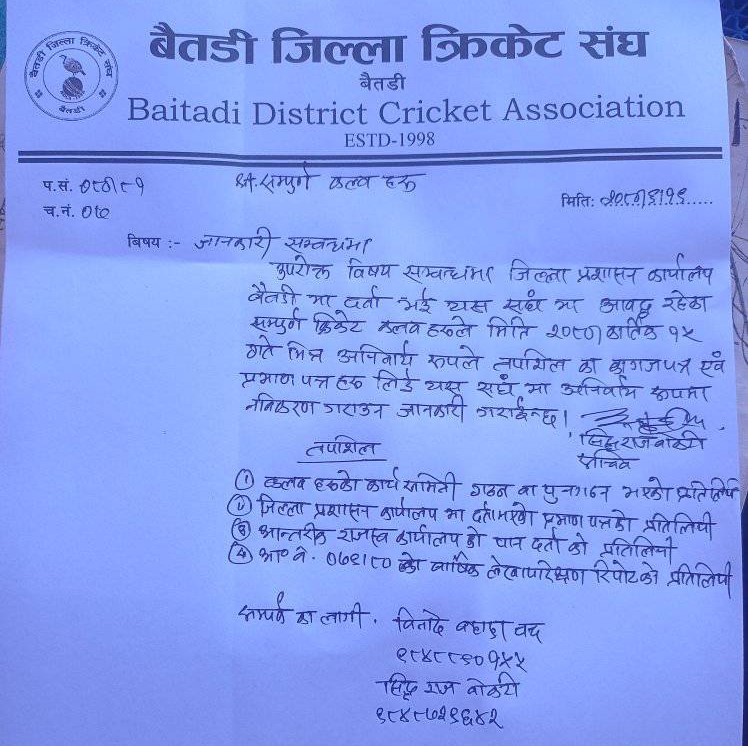 बैतडी जिल्ला क्रिकेट संघ
बैतडी
बैतडी जिल्ला क्रिकेट संघ
बैतडी
Baitadi District Cricket Association
ESTD-1998
प.सं. ०८०/८१
श्री सम्पुर्ण क्लव हरु
च.नं. ०१०
मिति: २०८०/६/१९
विषय :- जानकारी सम्वन्धमा
उपरोक्त विषय सम्वन्धमा जिल्ला प्रशासन कार्यालय
बैतडी मा दर्ता भई यस संघ मा आवद्ध रहेका
सम्पुर्ण क्रिकेट क्लव हरुले मिति २०८० कार्तिक १५
गते भित्र अनिवार्य रुपले तपशिल का कागजपत्र एवं
प्रमाण पत्र हरु लिई यस संघ मा अनिवार्य रुपमा
नविकरण गराउन जानकारी गराईन्छ।
सिद्धराज वोहरी
सचिव
तपशिल
① क्लव हरुको कार्य समिती गठन वा पुनगठन भएको प्रतिलिपी
② जिल्ला प्रशासन कार्यालय मा दर्ताभएको प्रमाण पत्रको प्रतिलिपी
③ आन्तरीक राजस्व कार्यालय को पान दर्ता को प्रतिलिपी
④ आ० व. ०७९/८० को वार्षिक लेखापरिक्षण रिपोटको प्रतिलिपी
सम्पर्क का लागी. विनोद वहादुर चन्द
९८४८८६०१५५
सिद्ध राज वोहरी
९८४८७२९६४२